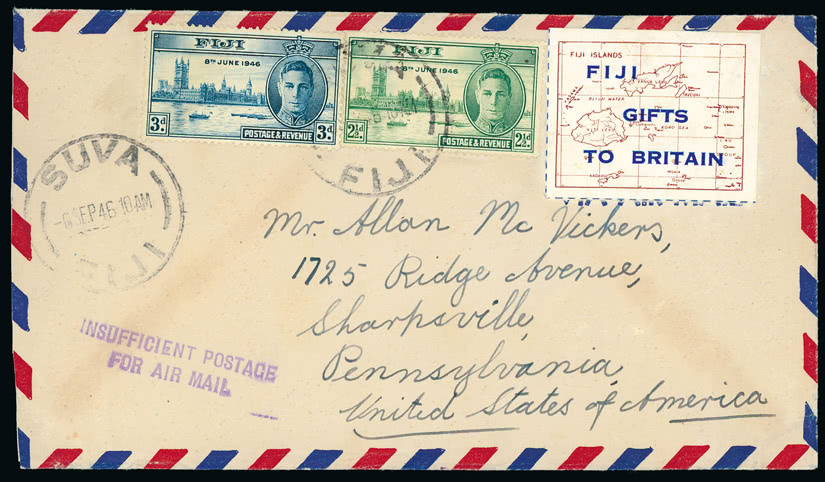 FIJI
8TH JUNE 1946
3d. POSTAGE & REVENUE 3d.
FIJI
8TH JUNE 1946
2½d. POSTAGE & REVENUE 2½d.
FIJI
FIJI ISLANDS
FIJI
GIFTS
TO BRITAIN
KORO SEA
SUVA
-6 SEP 46 10 AM
FIJI
Mr. Allan Mc Vickers,
1725 Ridge Avenue,
Sharpsville,
Pennsylvania,
United States of America
INSUFFICIENT POSTAGE
FOR AIR MAIL